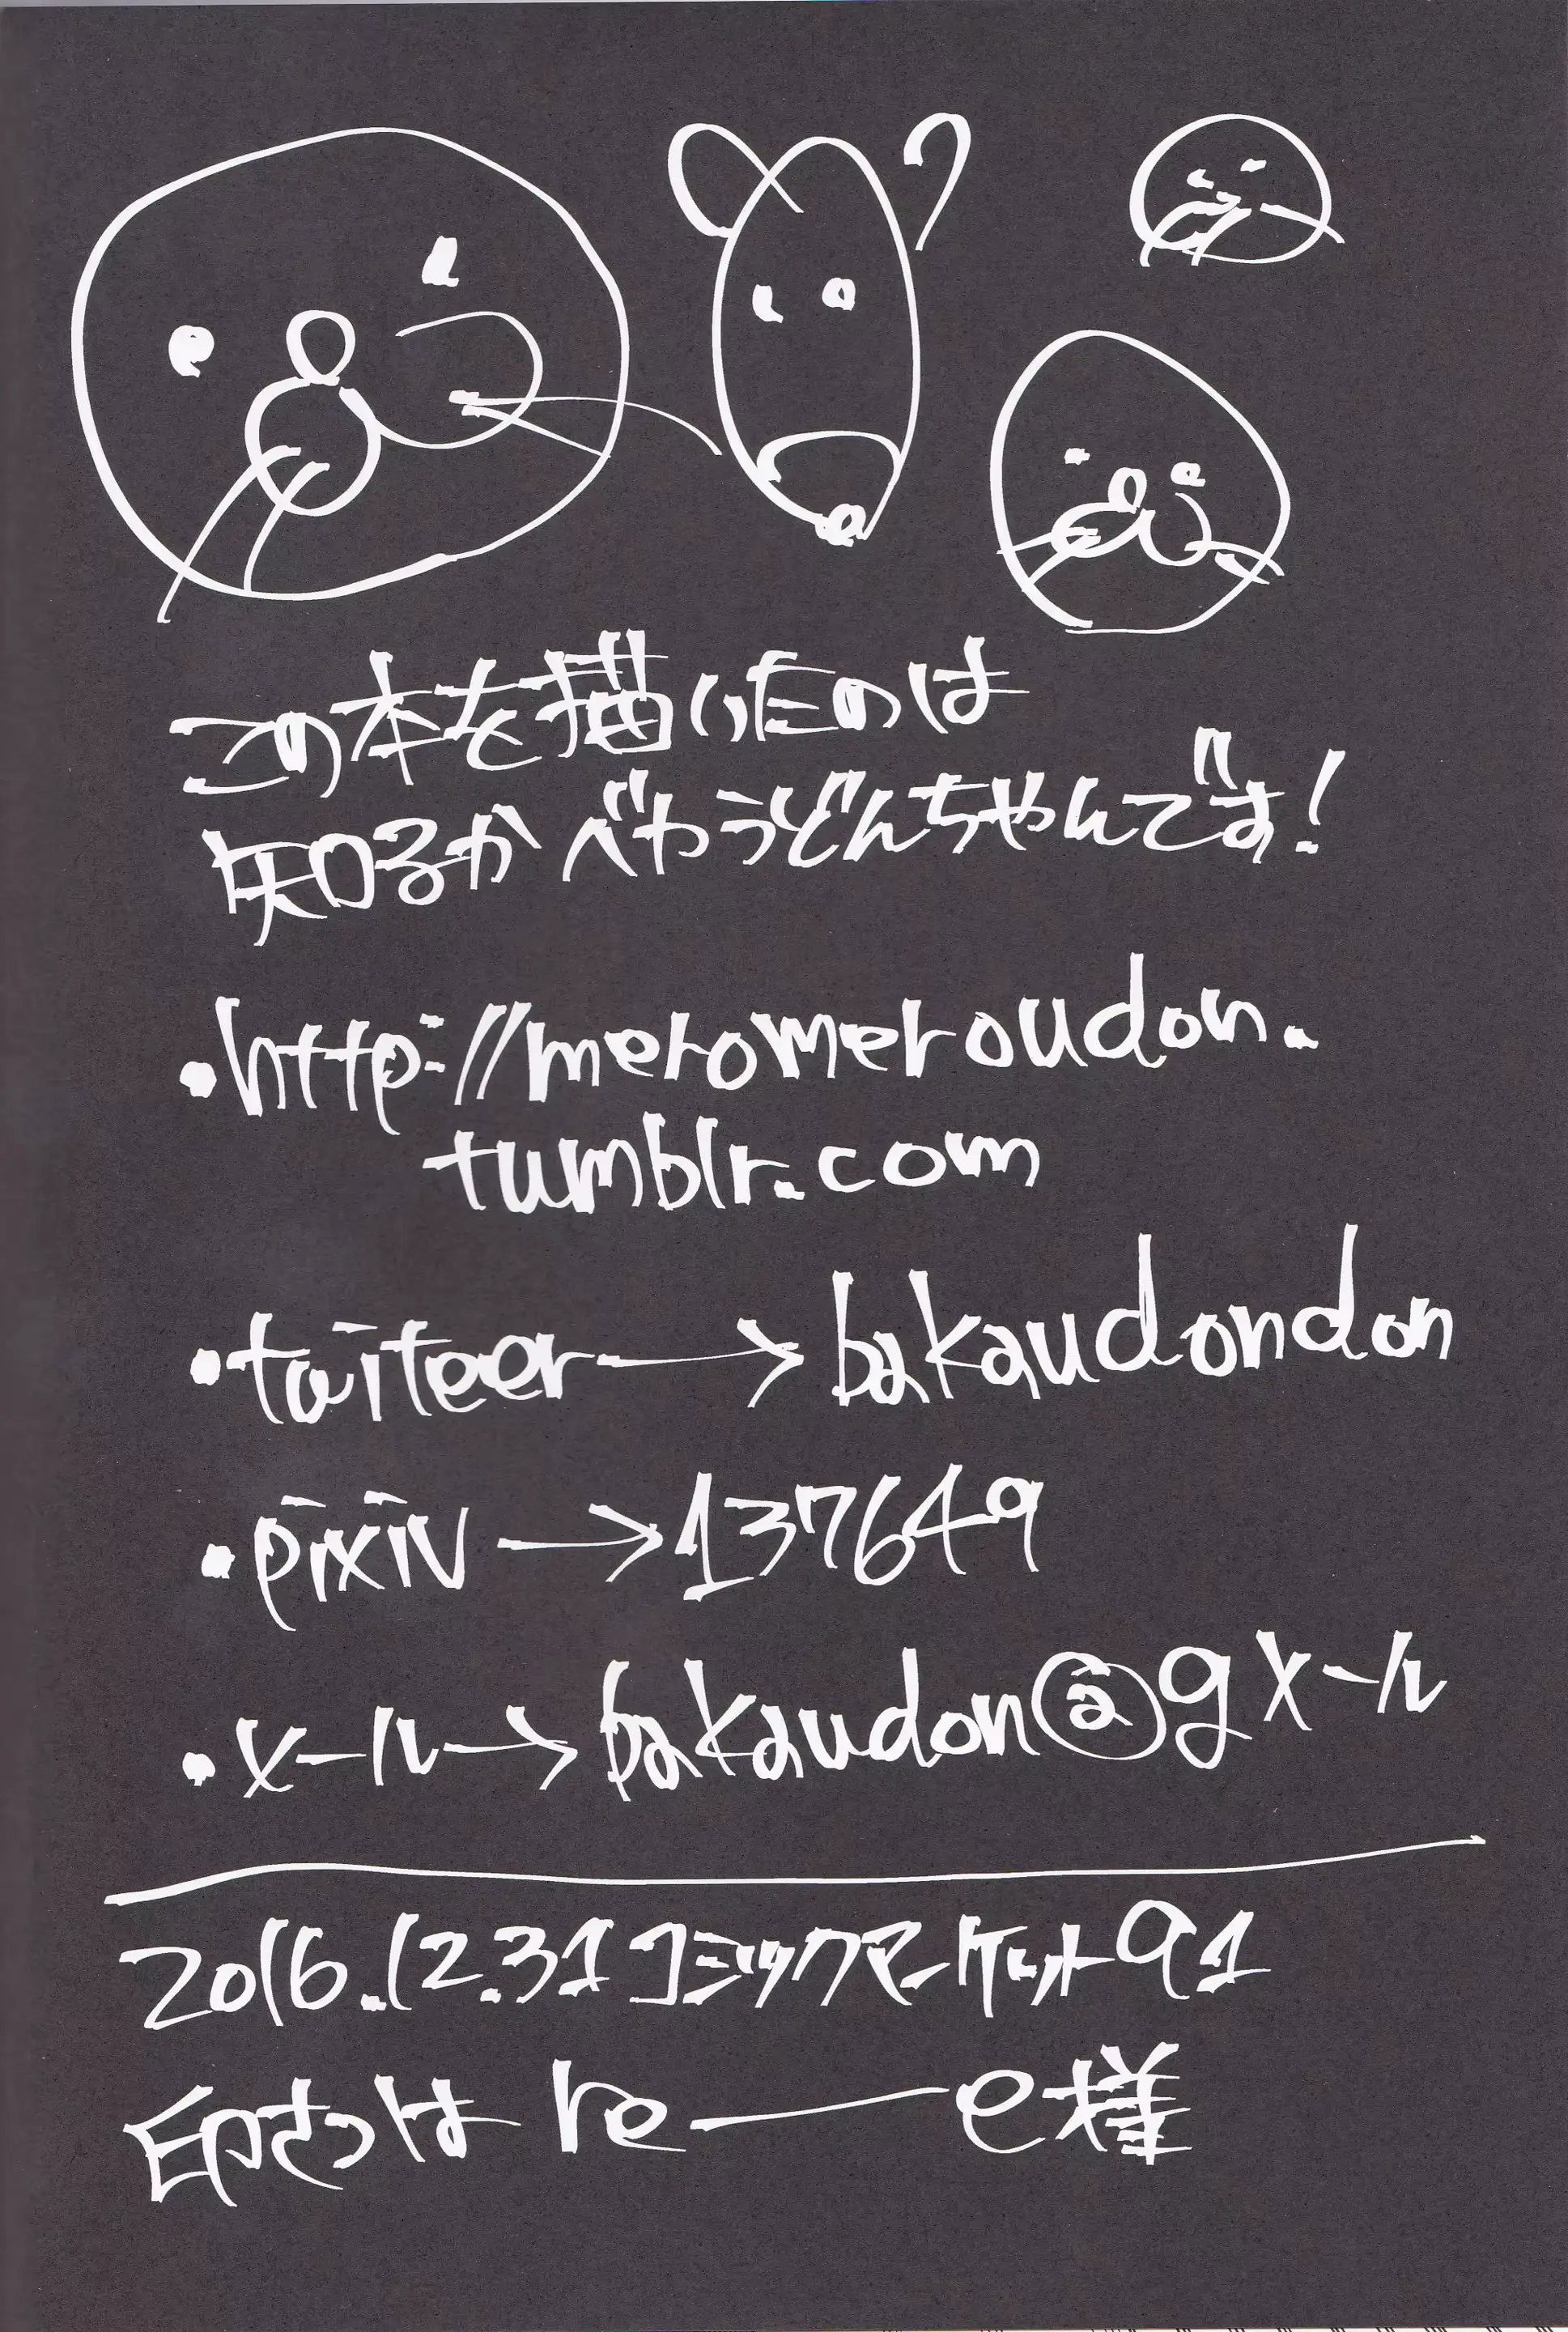 この本を描いたのは
知るかバやうどんちゃんです！
・http://meromeroudon.
tumblr.com
・taiteer→bakaudondon
・pixiv→137649
・メール→bakaudon@gメール
2016.12.31コミックマーケット91
印さつはre―e様